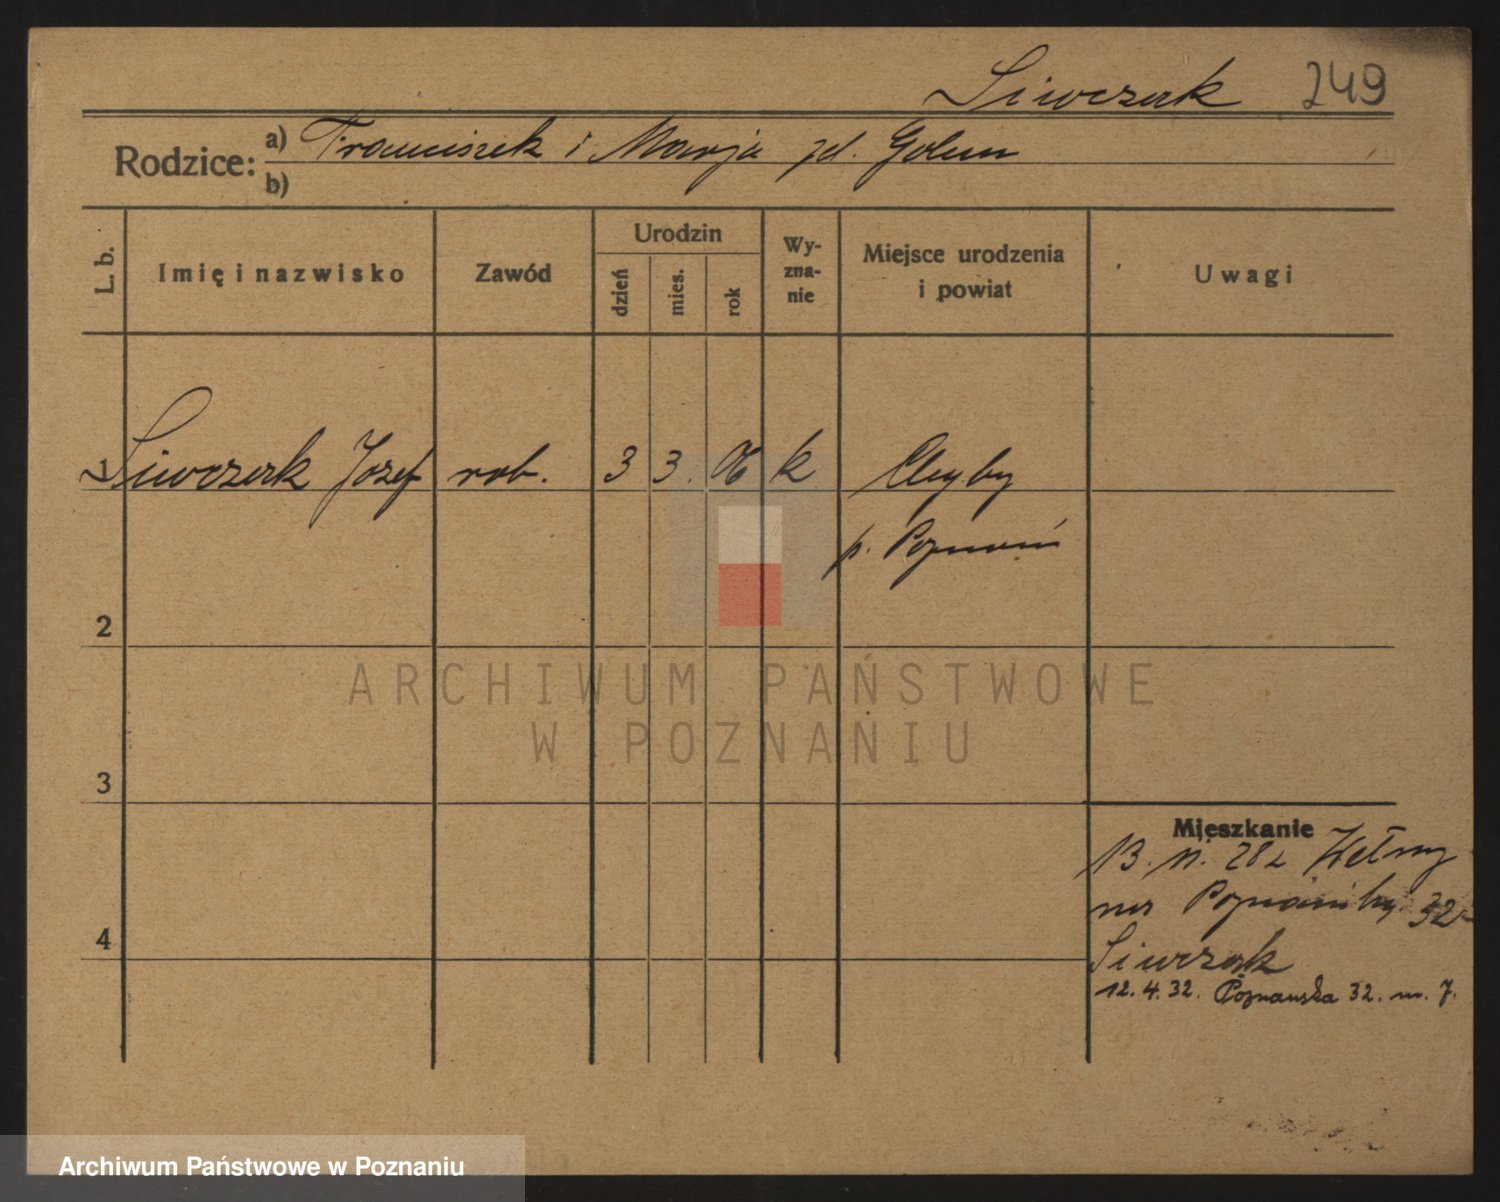 Siwczak 249
Rodzice: a) Franciszek i Marja
b)
L. b.
Imię i nazwisko
Zawód
Urodzin
dzień
mies.
rok
Wy-
zna-
nie
Miejsce urodzenia
i powiat
Uwagi
1 Siwczak Józef rob. 3 3. 06 k
p. Poznań
2
3
4
Mieszkanie
13. 28
Poznań 32
Siwczak
12. 4. 32. Poznańska 32. m. 7.
ARCHIWUM PAŃSTWOWE
W POZNANIU
Archiwum Państwowe w Poznaniu